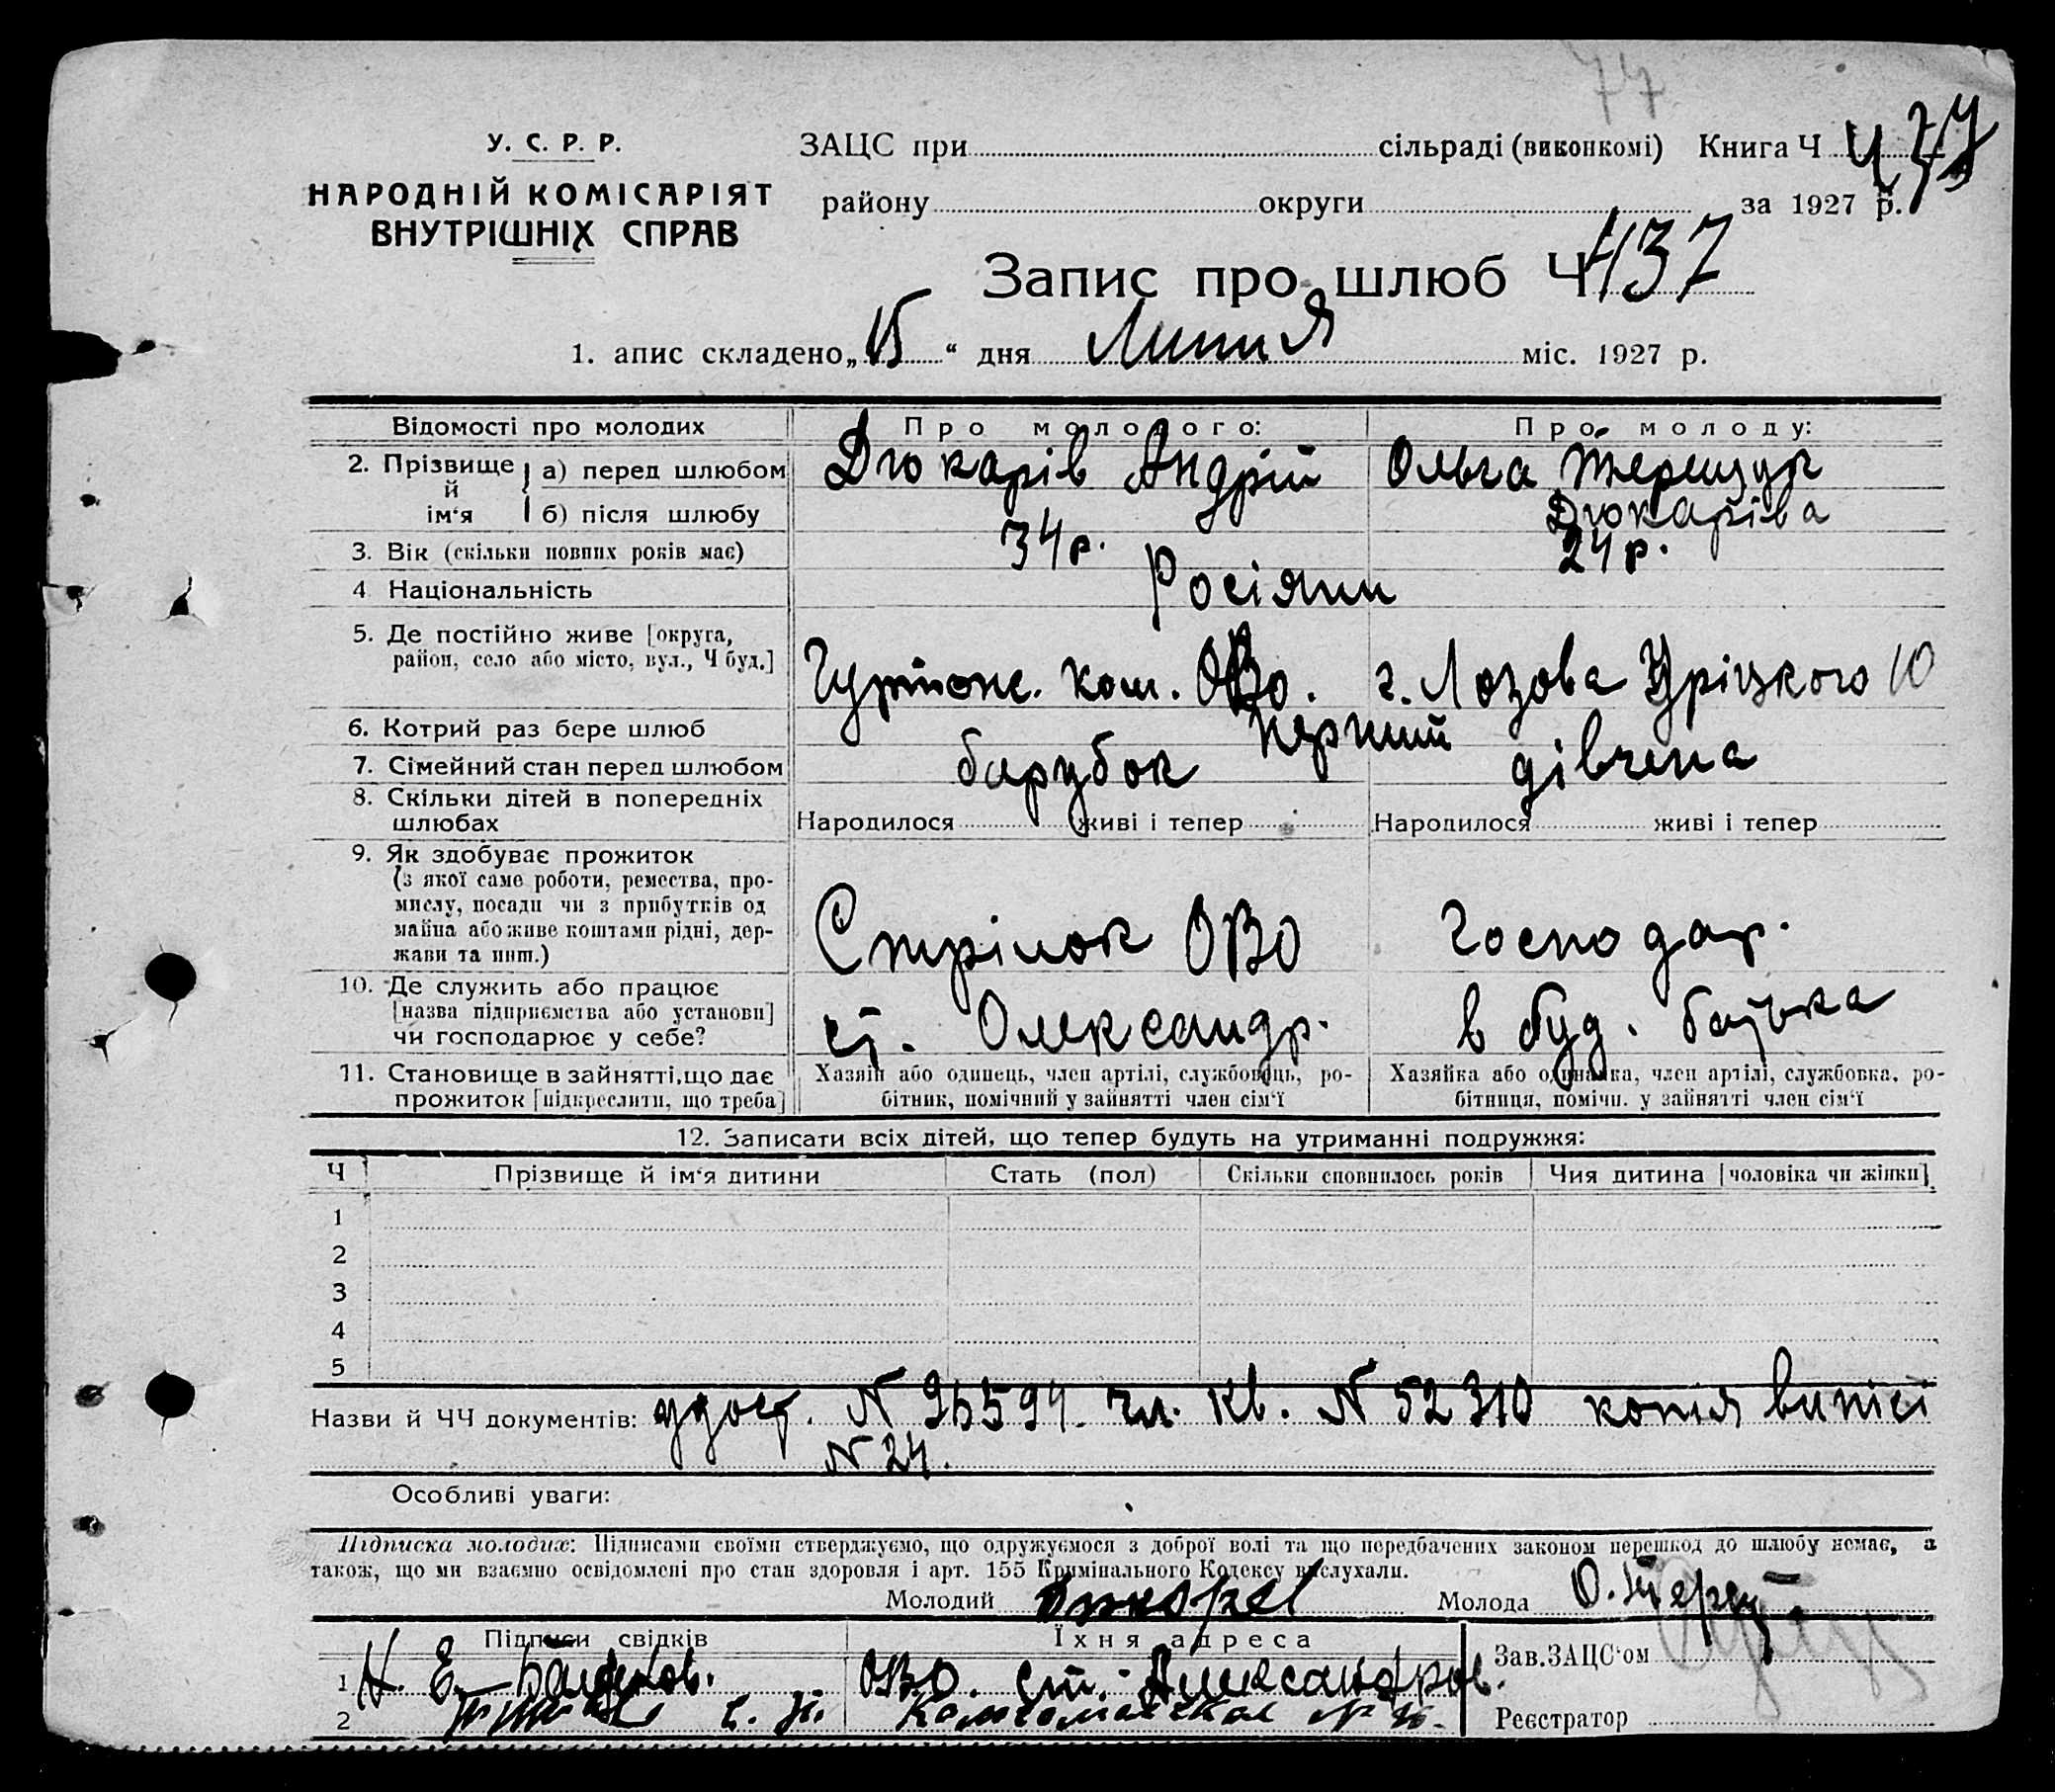 77
У. С. Р. Р.
НАРОДНІЙ КОМІСАРІЯТ
ВНУТРІШНІХ СПРАВ
ЗАЦС при сільраді (виконкомі) Книга Ч
району округи за 1927 р.
Запис про шлюб Ч 437
1. апис складено „15“ дня Липня міс. 1927 р.
Відомості про молодих Про молодого: Про молоду:
2. Прізвище й ім‘я а) перед шлюбом Дюкарів Андрій Ольга Терещук
б) після шлюбу Дюкаріва
3. Вік (скільки повних років має) 34 р. 24 р.
4 Національність Росіяни
5. Де постійно живе [округа, район, село або місто, вул., Ч буд.] Гуртож. ком. ОВО. г. Лозова Уріцкого 10
6. Котрий раз бере шлюб Перший
7. Сімейний стан перед шлюбом барубок дівчена
8. Скільки дітей в попередніх шлюбах Народилося живі і тепер Народилося живі і тепер
9. Як здобуває прожиток
(з якої саме роботи, ремества, про-
мислу, посади чи з прибутків од
майна або живе коштами рідні, дер-
жави та инш.) Стрілок ОВО Господар.
10. Де служить або працює
[назва підприємства або установи]
чи господарює у себе? ст. Олександр. в буд. батька
11. Становище в зайнятті, що дає
прожиток [підкреслити, що треба]
Хазяїн або одинець, член артілі, службовець, ро-
бітник, помічний у зайнятті член сім‘ї
Хазяйка або одиначка, член артілі, службовка, ро-
бітниця, помічн. у зайнятті член сім‘ї
12. Записати всіх дітей, що тепер будуть на утриманні подружжя:
Ч Прізвище й ім‘я дитини Стать (пол) Скільки сповнилось років Чия дитина [чоловіка чи жінки]
1
2
3
4
5
Назви й ЧЧ документів: удост. N 95594. чл. кв. N 52310 копія виписі
N 24.
Особливі уваги:
Підписка молодих: Підписами своїми стверджуємо, що одружуємося з доброї волі та що передбачених законом перешкод до шлюбу немає, а
також, що ми взаємно освідомлені про стан здоровля і арт. 155 Кримінального Кодексу вислухали.
Молодий Молода О. Терещ
Підписи свідків Їхня адреса Зав.ЗАЦС‘ом
1 Н. Е. ОВО. ст. Александров.
2 Реєстратор